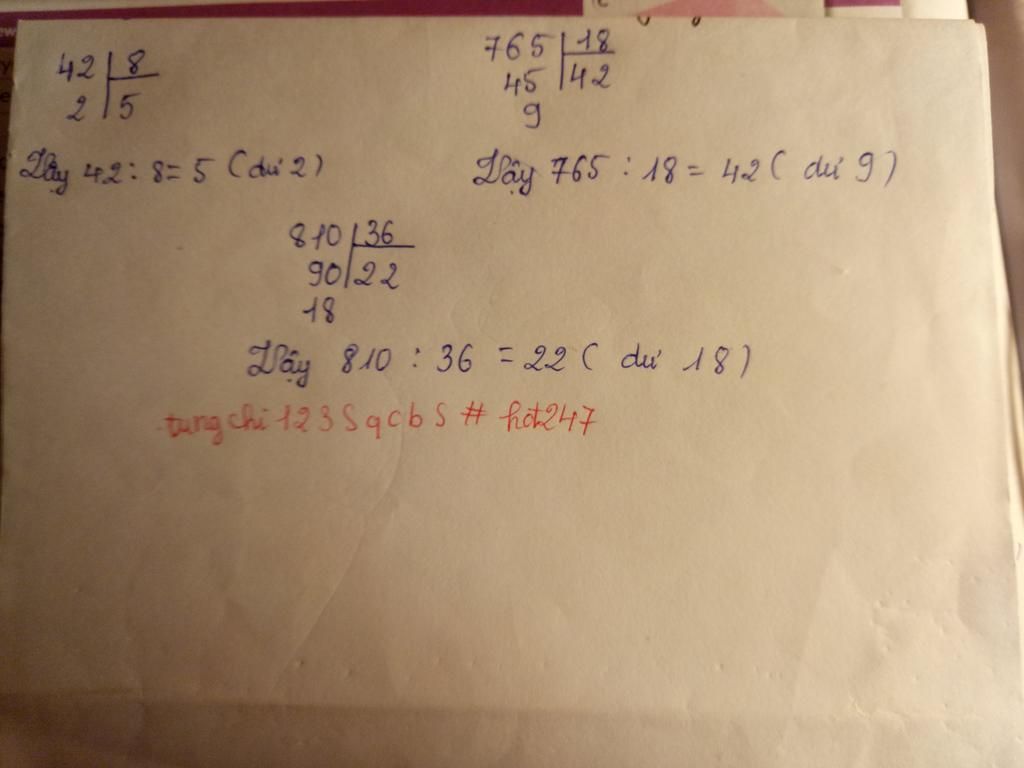 42 8
2 5
Vậy 42 : 8 = 5 (dư 2)
765 18
45 42
9
Vậy 765 : 18 = 42 ( dư 9)
810 36
90 22
18
Vậy 810 : 36 = 22 ( dư 18)
tungchi123SqcbS # hot247